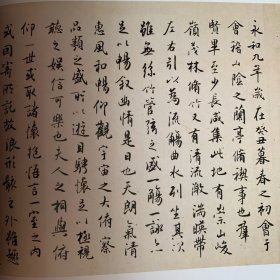 永和九年歲在癸丑暮春之初會于
會稽山陰之蘭亭脩禊事也羣
賢畢至少長咸集此地有崇山峻
嶺茂林脩竹又有清流激湍暎帶
左右引以為流觴曲水列坐其次
雖無絲竹管弦之盛一觴一詠亦
足以暢敘幽情是日也天朗氣清
惠風和暢仰觀宇宙之大俯察
品類之盛所以遊目騁懷足以極視
聽之娛信可樂也夫人之相與俯
仰一世或取諸懷抱悟言一室之內
或因寄所託放浪形骸之外雖趣